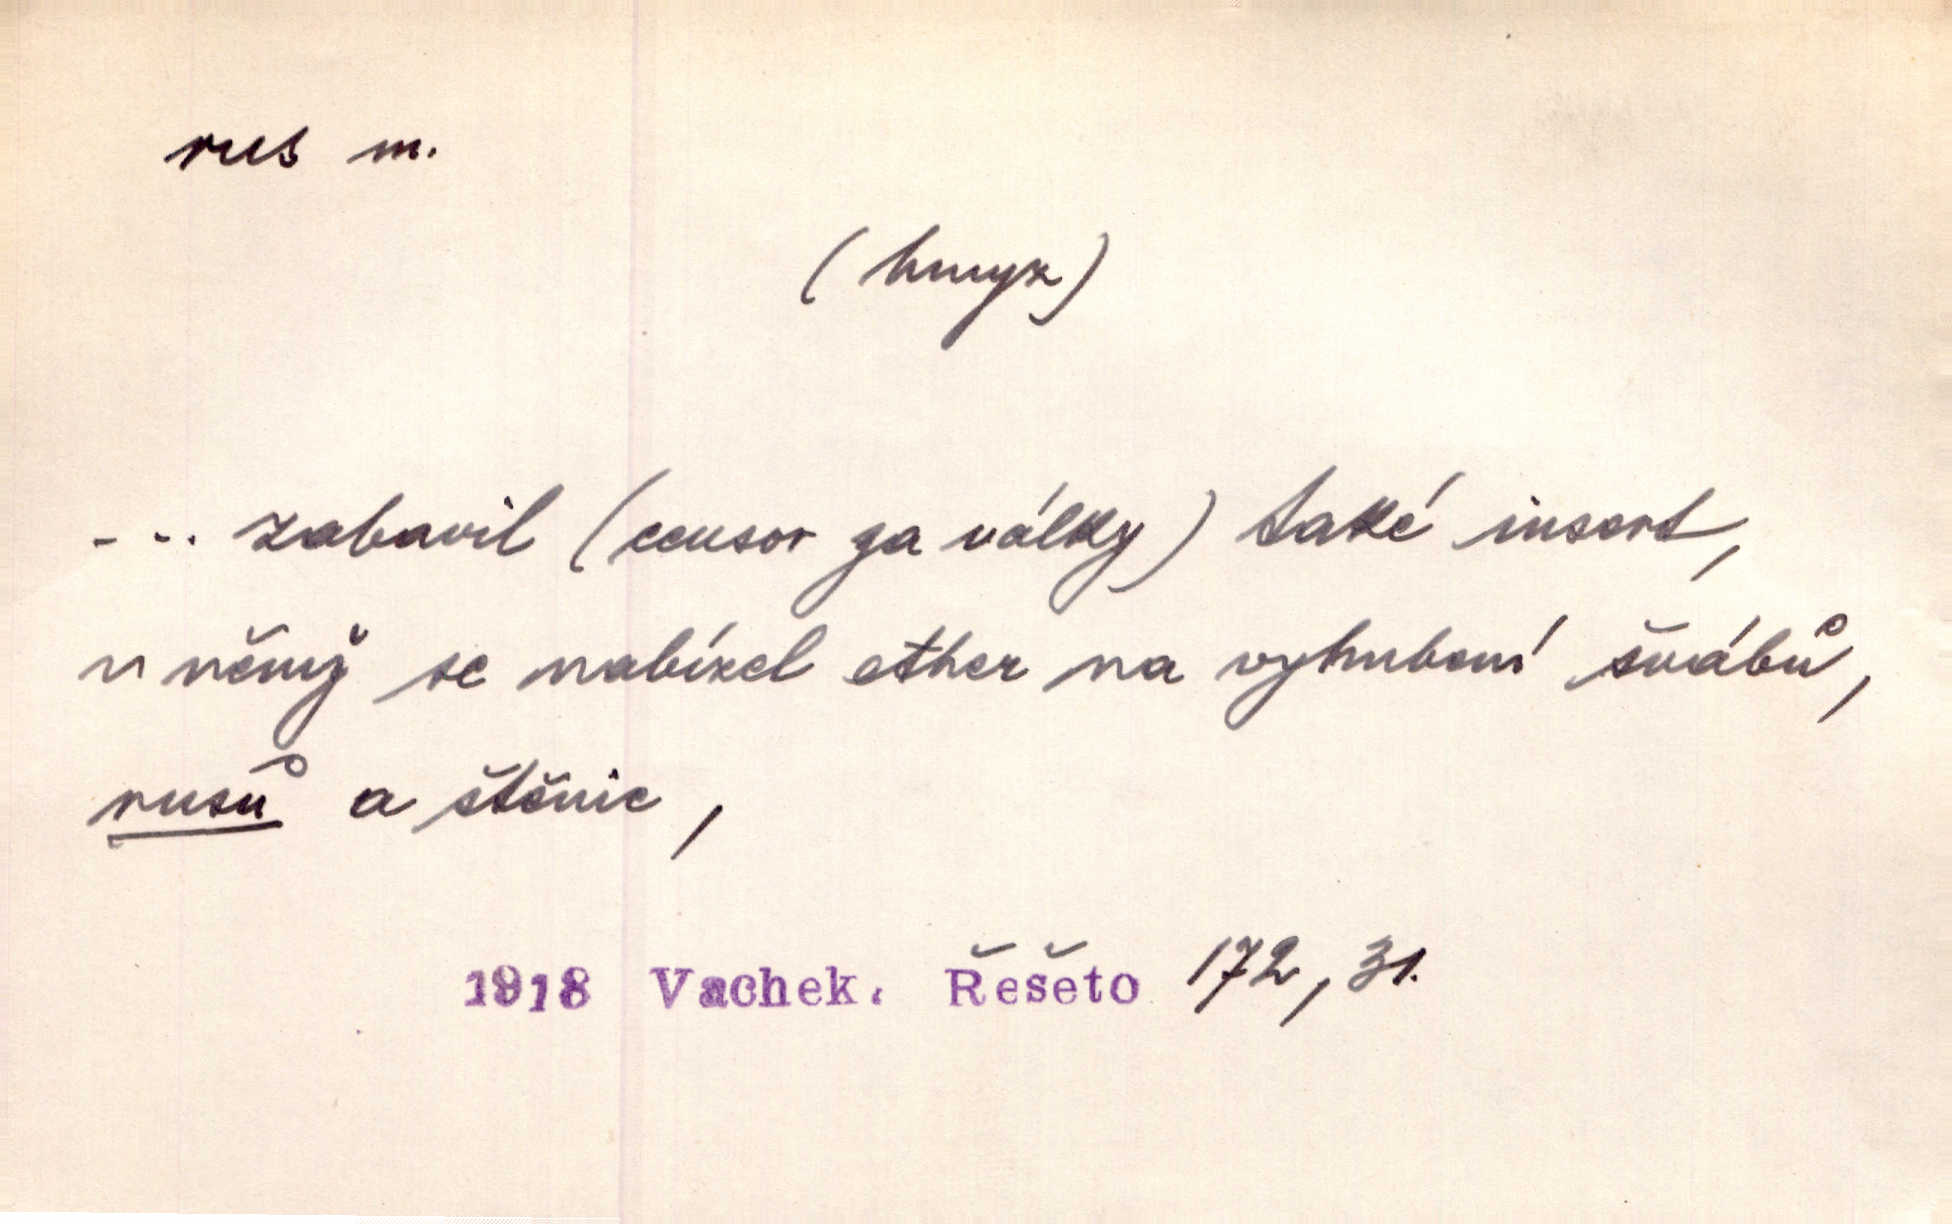 rus m.
(hmyz)
--.. zabavil (censor za války) také insert,
v němž se nabízel ether na vyhubení švábů,
rusů a štěnic,
1918 Vachek. Řešeto 172, 31.